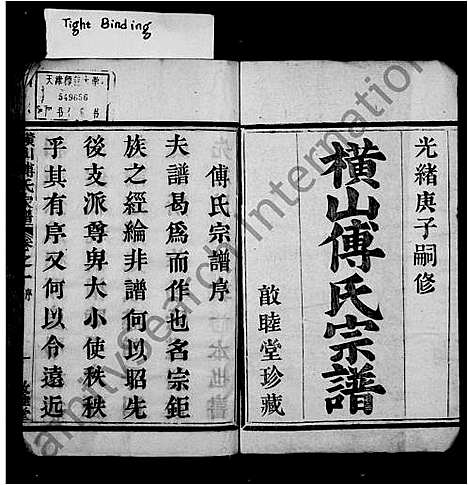 Tight Binding
天津師範大學
549656
光緒庚子嗣修
橫山傅氏宗譜
敦睦堂珍藏
傅氏宗譜序
夫譜曷爲而作也名宗鉅
族之經綸非譜何以昭先
後支派尊卑大小使秩秩
乎其有序又何以令遠近
橫山傅氏宗譜
FamilySearch International